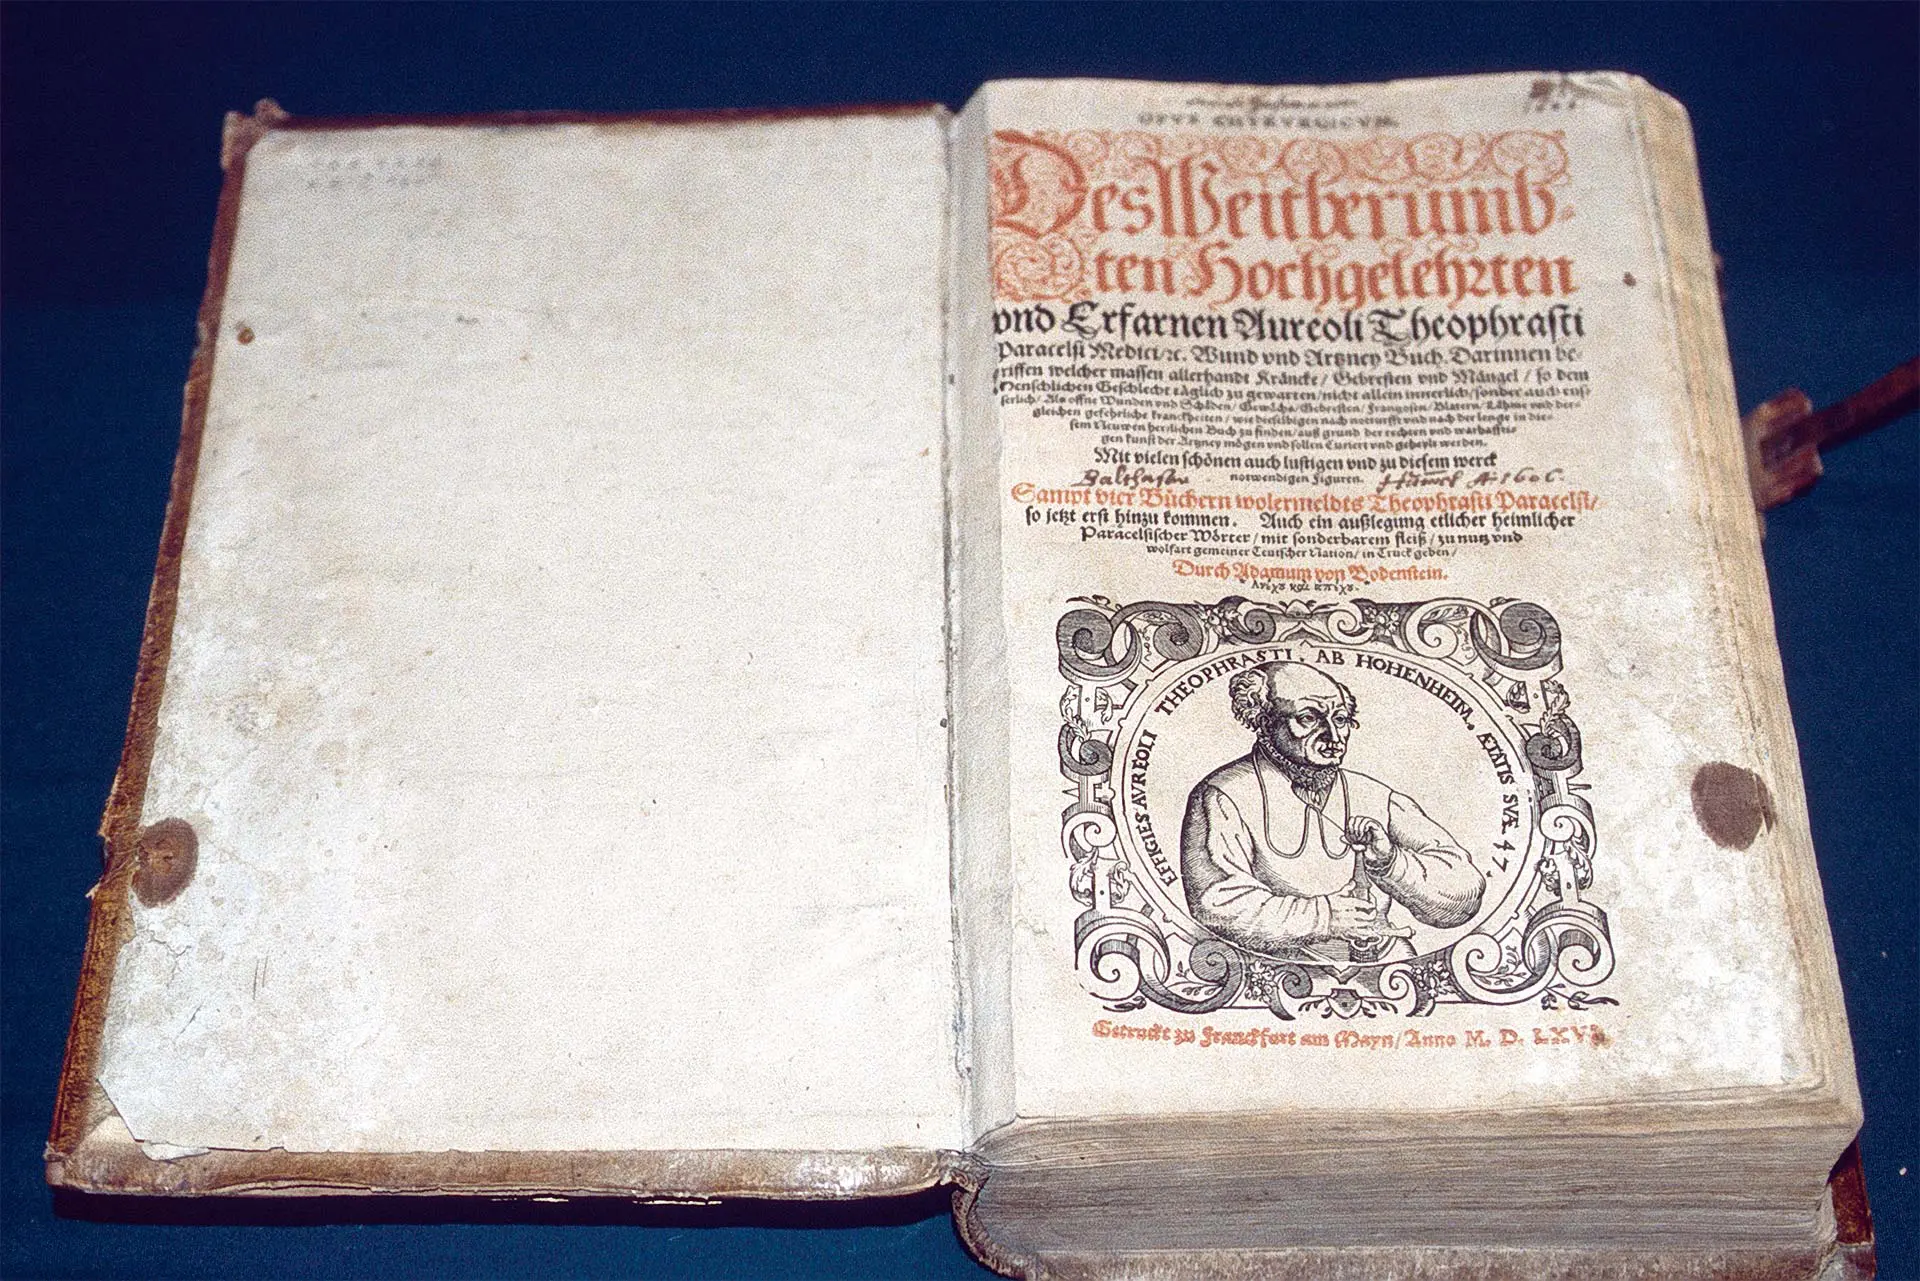 OPVS CHYRVRGICVM.
Des Weitberümb-
ten Hochgelehrten
vnd Erfarnen Aureoli Theophrasti
Paracelsi Medici/ꝛc. Wund vnd Artzney Buch. Darinnen be-
griffen welcher massen allerhandt Kräncke/ Gebresten vnd Mängel/ so dem
Menschlichen Geschlecht täglich zu gewarten/ nicht allein innerlich/ sonder auch eus-
serlich/ Als offne Wunden vnd Schäden/ Gewächs/ Gebresten/ Frantzosen/ Blatern/ Lähme vnd der-
gleichen gefehrliche kranckheiten/ wie dieselbigen nach notturfft vnd nach der lenge in die-
sem Neuwen herrlichen Buch zu finden/ auß grund der rechten vnd warhaffti-
gen kunst der Artzney mögen vnd sollen Curiert vnd geheylt werden.
Mit vielen schönen auch lustigen vnd zu diesem werck
Balthasar notwendigen Figuren. A 1606.
Sampt vier Büchern wolermeldts Theophrasti Paracelsi/
so jetzt erst hinzu kommen. Auch ein außlegung etlicher heimlicher
Paracelsischer Wörter/ mit sonderbarem fleiß/ zu nutz vnd
wolfart gemeiner Teutscher Nation/ in Truck geben/
Durch Adamum von Bodenstein.
EFFIGIES AVREOLI THEOPHRASTI, AB HOHENHEIM. ÆTATIS SVÆ 47.
Getruckt zu Franckfurt am Mayn/ Anno M. D. LXVI.